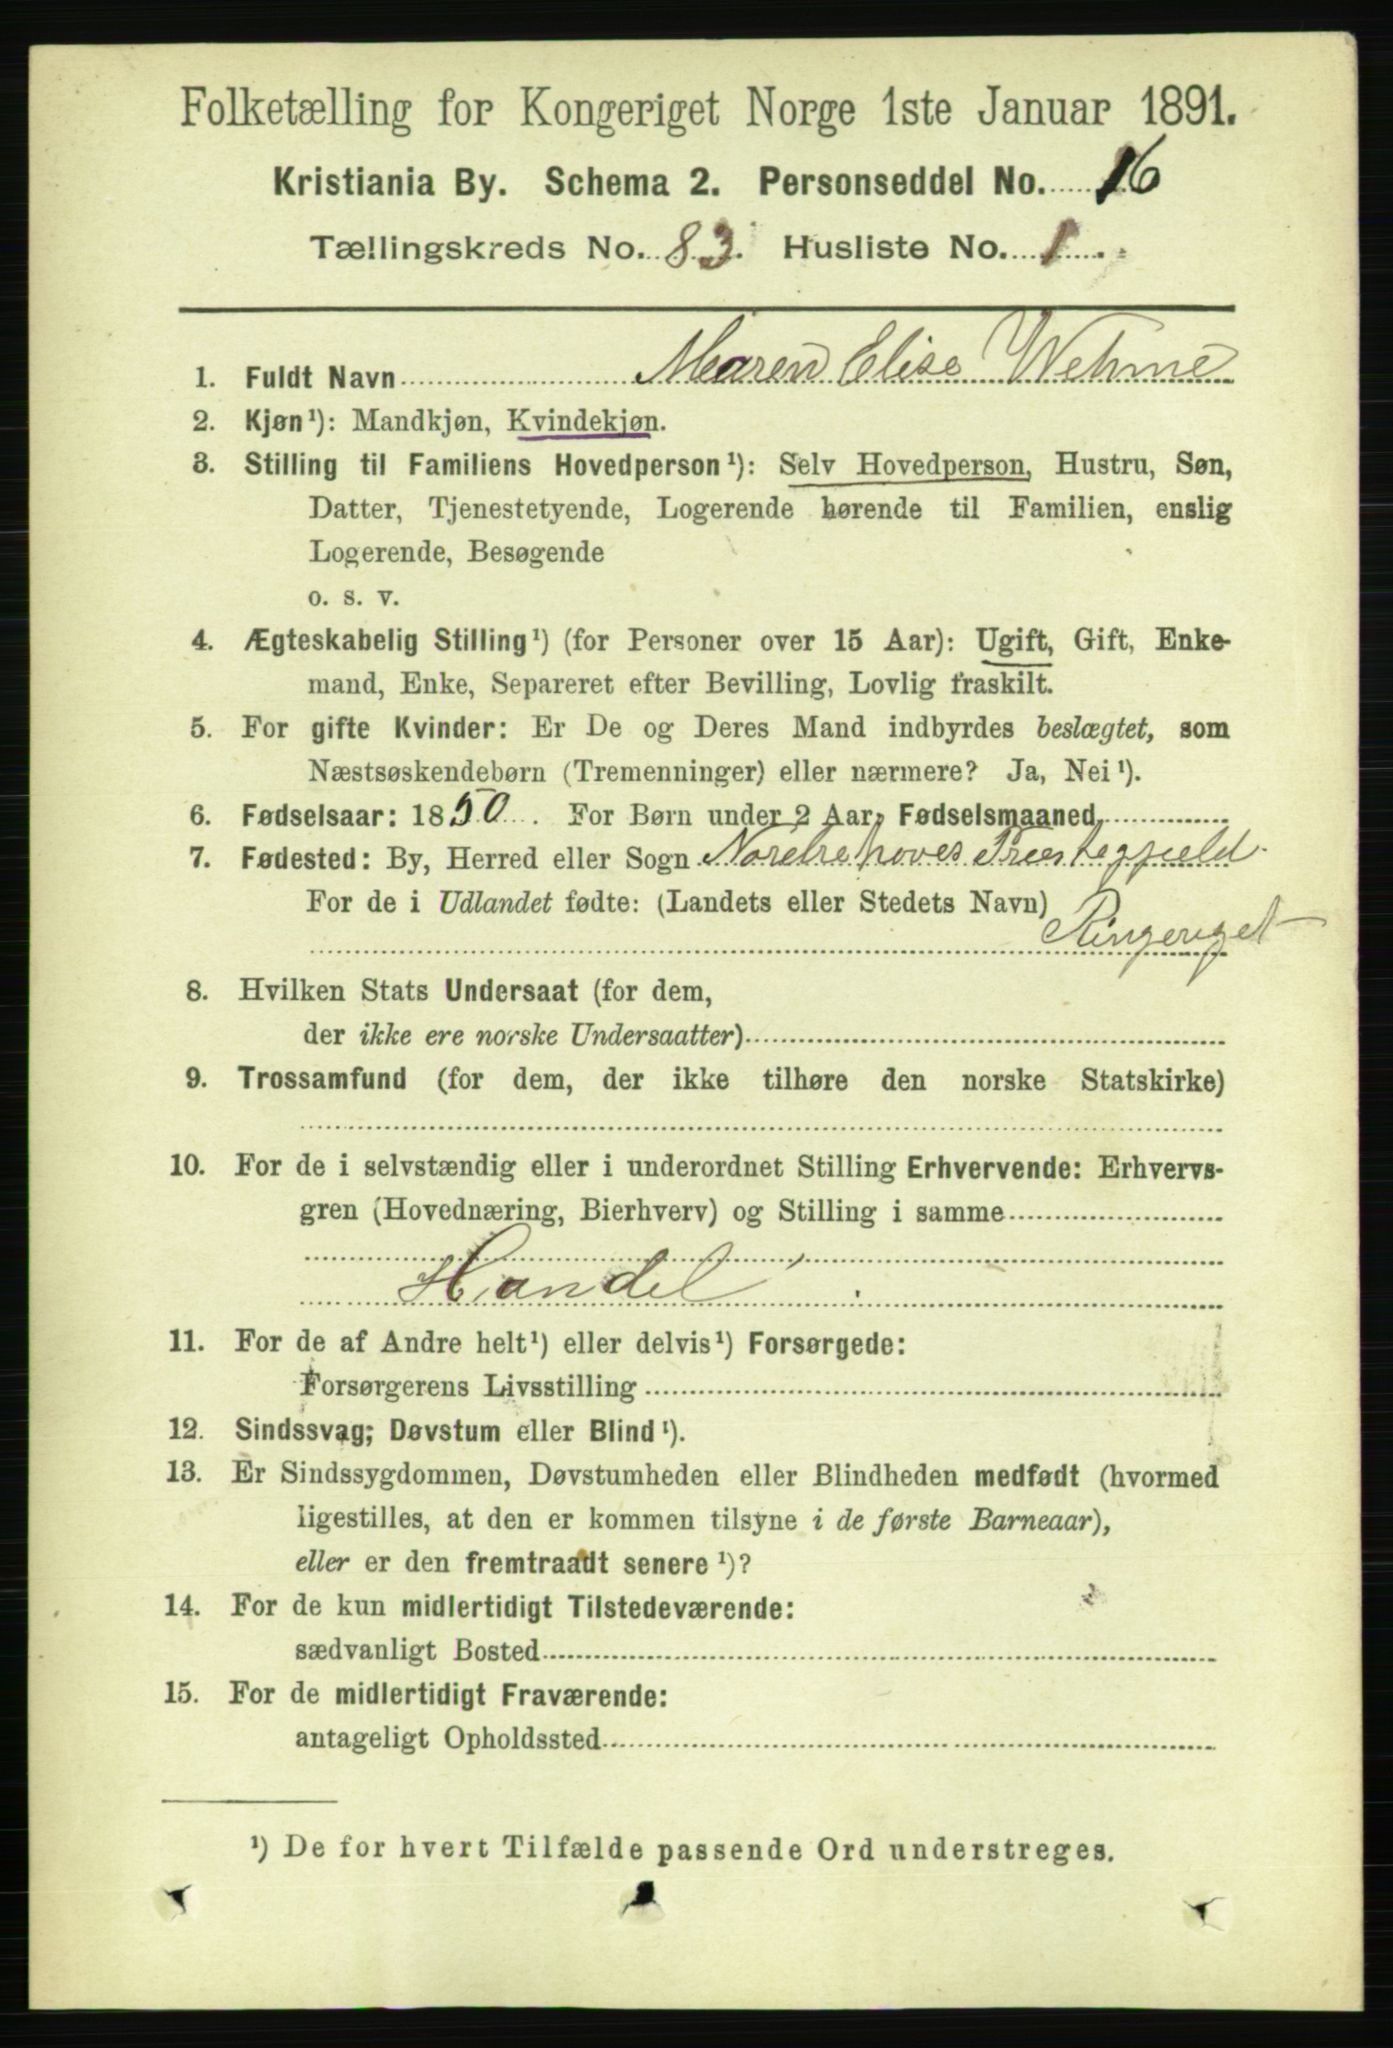 Folketælling for Kongeriget Norge 1ste Januar 1891.
Kristiania By. Schema 2. Personseddel No. 16
Tællingskreds No. 83. Husliste No. 1.
1. Fuldt Navn Maren Elise Wehme
2. Kjøn¹): Mandkjøn, Kvindekjøn.
3. Stilling til Familiens Hovedperson¹): Selv Hovedperson, Hustru, Søn,
Datter, Tjenestetyende, Logerende hørende til Familien, enslig
Logerende, Besøgende
o. s. v.
4. Ægteskabelig Stilling¹) (for Personer over 15 Aar): Ugift, Gift, Enke-
mand, Enke, Separeret efter Bevilling, Lovlig fraskilt.
5. For gifte Kvinder: Er De og Deres Mand indbyrdes beslægtet, som
Næstsøskendebørn (Tremenninger) eller nærmere? Ja, Nei¹).
6. Fødselsaar: 1850. For Børn under 2 Aar, Fødselsmaaned
7. Fødested: By, Herred eller Sogn Nordrehoves Præstegjæld
For de i Udlandet fødte: (Landets eller Stedets Navn)
Ringeriget
8. Hvilken Stats Undersaat (for dem,
der ikke ere norske Undersaatter)
9. Trossamfund (for dem, der ikke tilhøre den norske Statskirke)
10. For de i selvstændig eller i underordnet Stilling Erhvervende: Erhvervs-
gren (Hovednæring, Bierhverv) og Stilling i samme
Handel
11. For de af Andre helt¹) eller delvis¹) Forsørgede:
Forsørgerens Livsstilling
12. Sindssvag; Døvstum eller Blind¹).
13. Er Sindssygdommen, Døvstumheden eller Blindheden medfødt (hvormed
ligestilles, at den er kommen tilsyne i de første Barneaar),
eller er den fremtraadt senere¹)?
14. For de kun midlertidigt Tilstedeværende:
sædvanligt Bosted
15. For de midlertidigt Fraværende:
antageligt Opholdssted
¹) De for hvert Tilfælde passende Ord understreges.